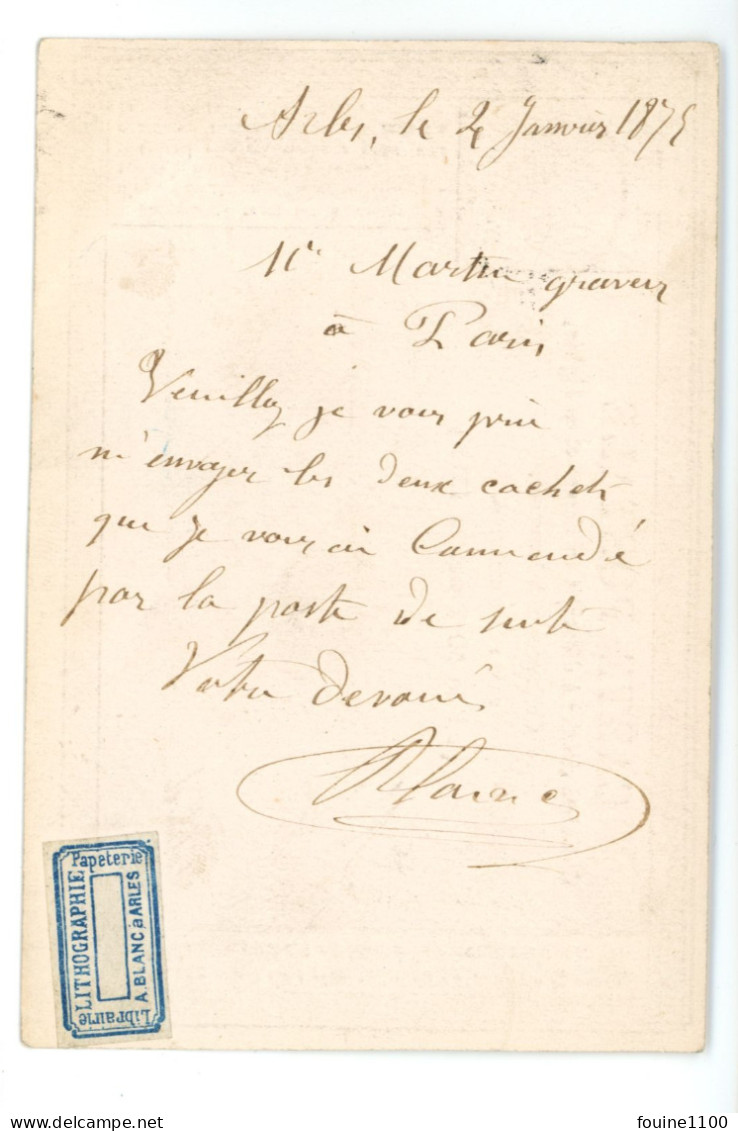 Arles, le 2 Janvier 1875
Mr Martin graveur
à Paris
Veuillez je vous prie
m'envoyer les deux cachets
que je vous ai Commandé
par la poste de suite
Votre dévoué
ABlanc
Papeterie
LITHOGRAPHIE
A. BLANC à ARLES
Librairie
delcampe.net
fouine1100